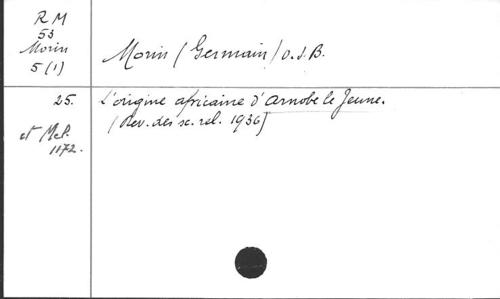 R M
53
Morin
5 (1)
Morin (Germain) O.S.B.
25.
et Mél.
1172.
L'origine africaine d'Arnobe le Jeune.
(Rev. des sc. rel. 1936)